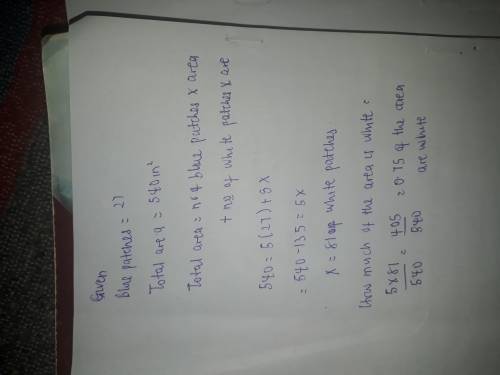 Given
blue patches = 27
Total area = 540 in²
Total area = no of blue patches x area
+ no of white patches x are
540 = 5(27) + 5x
= 540 - 135 = 5x
x = 81 of white patches
How much of the area is white =
5x81/540 = 405/540 = 0.75 of the area are white